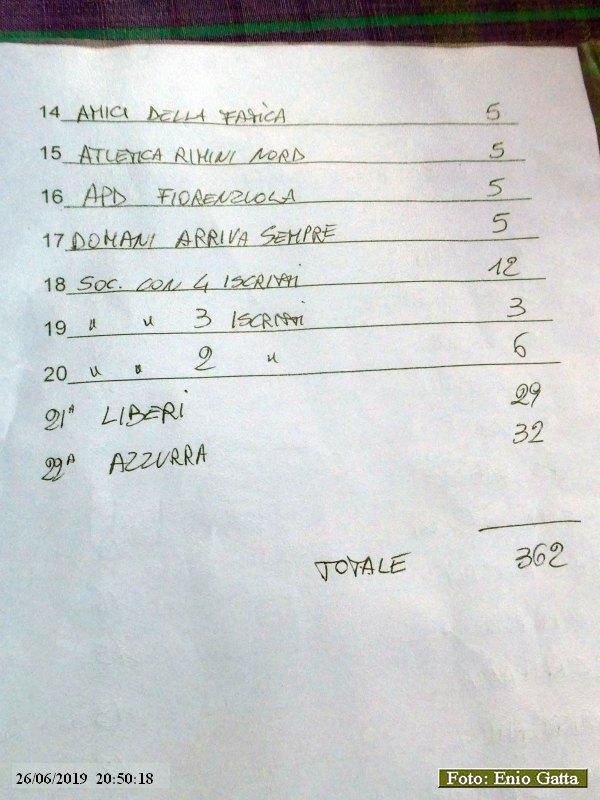 14 AMICI DELLA FATICA 5
15 ATLETICA RIMINI NORD 5
16 APD FIORENZUOLA 5
17 DOMANI ARRIVA SEMPRE 5
18 SOC. CON 4 ISCRITTI 12
19 " " 3 ISCRITTI 3
20 " " 2 " 6
21ª LIBERI 29
22ª AZZURRA 32
TOTALE 362
26/06/2019 20:50:18
Foto: Enio Gatta